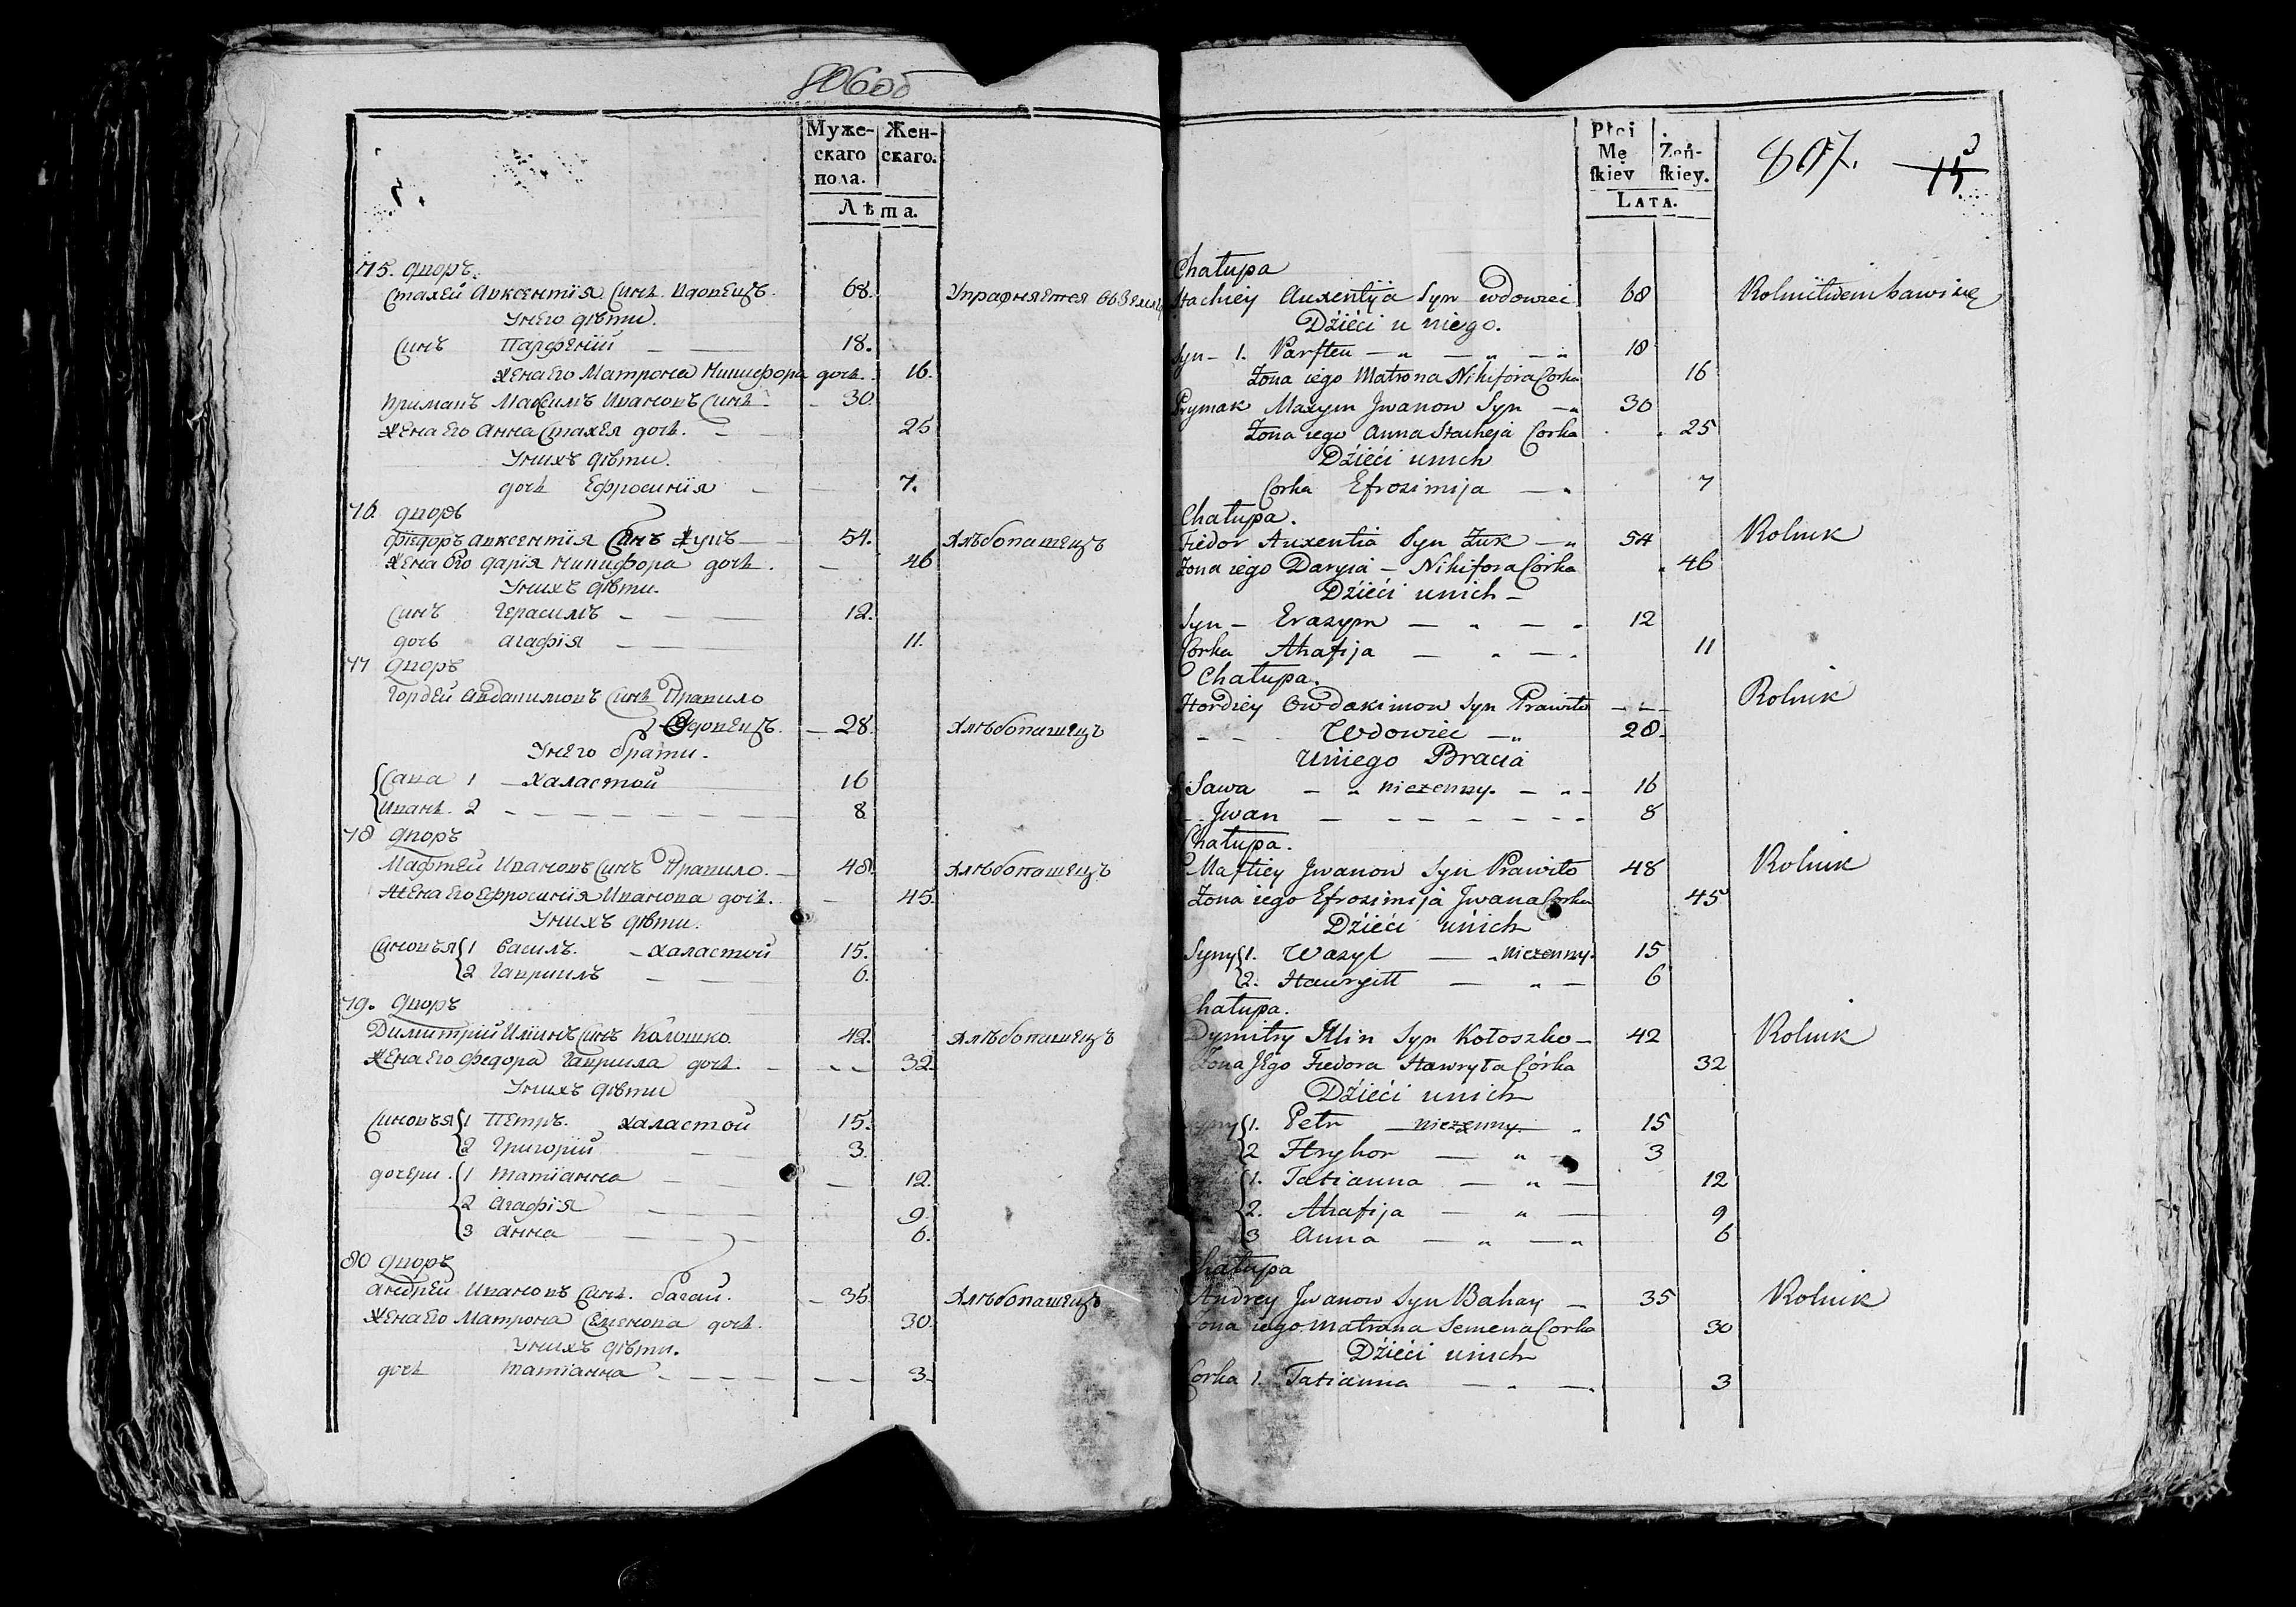 806об
Муже-
скаго
пола.
Жен-
скаго.
Лѣта.
75. дворъ.
Стахей Авксентїя синъ вдовецъ. 68. Упражняется въ Землед
У него дѣти.
Синъ Парфений — 18.
жена его Матрона Никифора дочь. 16.
Примакъ Максимъ Ивановъ Синъ — 30
жена его Анна Стахея дочь. — 25
У нихъ дѣти.
дочь Ефросинїя — 7.
76 дворъ
Фѣдоръ Авксентїя Синъ Жукъ — 54. Хлѣбопашецъ
жена Его Дарїя Никифора дочь. — 46
У нихъ дѣти.
Синъ Герасимъ — 12.
дочь Агафїя — 11.
77 дворъ
Гордей Авдакимовъ Синъ Правило
Вдовецъ. — 28. Хлѣбопашецъ
У него брати.
Сава 1 — Халастой 16
Иванъ. 2 — 8
78 дворъ
Мафтей Ивановъ Синъ Правило. — 48. Хлѣбопашецъ
Жена Его Ефросинїя Иванова дочь. — 45.
У нихъ дѣти.
Синовъя 1 Василъ. — Халастой 15.
2 Гавриилъ — 6.
79. дворъ
Димитрий Илїинъ Синъ Колошко. 42. Хлѣбопашецъ
Жена Его Федора Гаврила дочь. — 32.
У нихъ дѣти
Синовъя 1 Петръ. халастой 15.
2 Григорий — 3.
дочери. 1 Татїанна — 12.
2 Агафїя — 9.
3 Анна — 6.
80 дворъ
Андрей Ивановъ Синъ. багай. — 35. Хлѣбопашецъ
Жена Его Матрона Семенова дочь. 30.
У нихъ дѣти.
дочь Татїанна — 3.
Płci
Mę
ſkiey
Żeń-
ſkiey.
LATA.
807.
15
Chałupa
Stachiey Auxentija Syn wdowiec 68 Rolnictwem bawi się
Dzieci u niego.
Syn — 1. Parften — 18
Żona iego Matrona Nikifora Corka 16
Prymak Maxym Jwanow Syn — 30
Żona iego Anna Stacheja Corka 25
Dzieci unich
Corka Efrozimija — 7
Chałupa.
Fiedor Auxentia Syn Żuk — 54 Rolnik
Żona iego Daryia — Nikifora Córka 46
Dzieci unich —
Syn — Erazym — 12
Córka Ahafija — 11
Chałupa.
Hordiey Owdakimow Syn Prawiło — Rolnik
Wdowiec — 28
Uniego Bracia
1 Sawa — nieżenny. — 16
2 Jwan — 8
Chałupa.
Maftiey Jwanow Syn Prawiło 48 Rolnik
Żona iego Efrozimija Jwana Corka 45
Dzieci unich
Syny 1. Wazyl — nieżenny. 15
2. Hawryiłł — 6
Chałupa.
Dymitry Illin Syn Kołoszko — 42 Rolnik
Żona Jego Fiedora Hawryła Córka 32
Dzieci unich
Syny 1. Petr — nieżenny. 15
2 Hryhor — 3
1. Tatianna — 12
2. Ahafija — 9
3 Anna — 6
Chałupa
Andrey Jwanow Syn Bahay — 35 Rolnik
Żona iego Matrona Semena Corka 30
Dzieci unich
Corka 1. Tatianna — 3